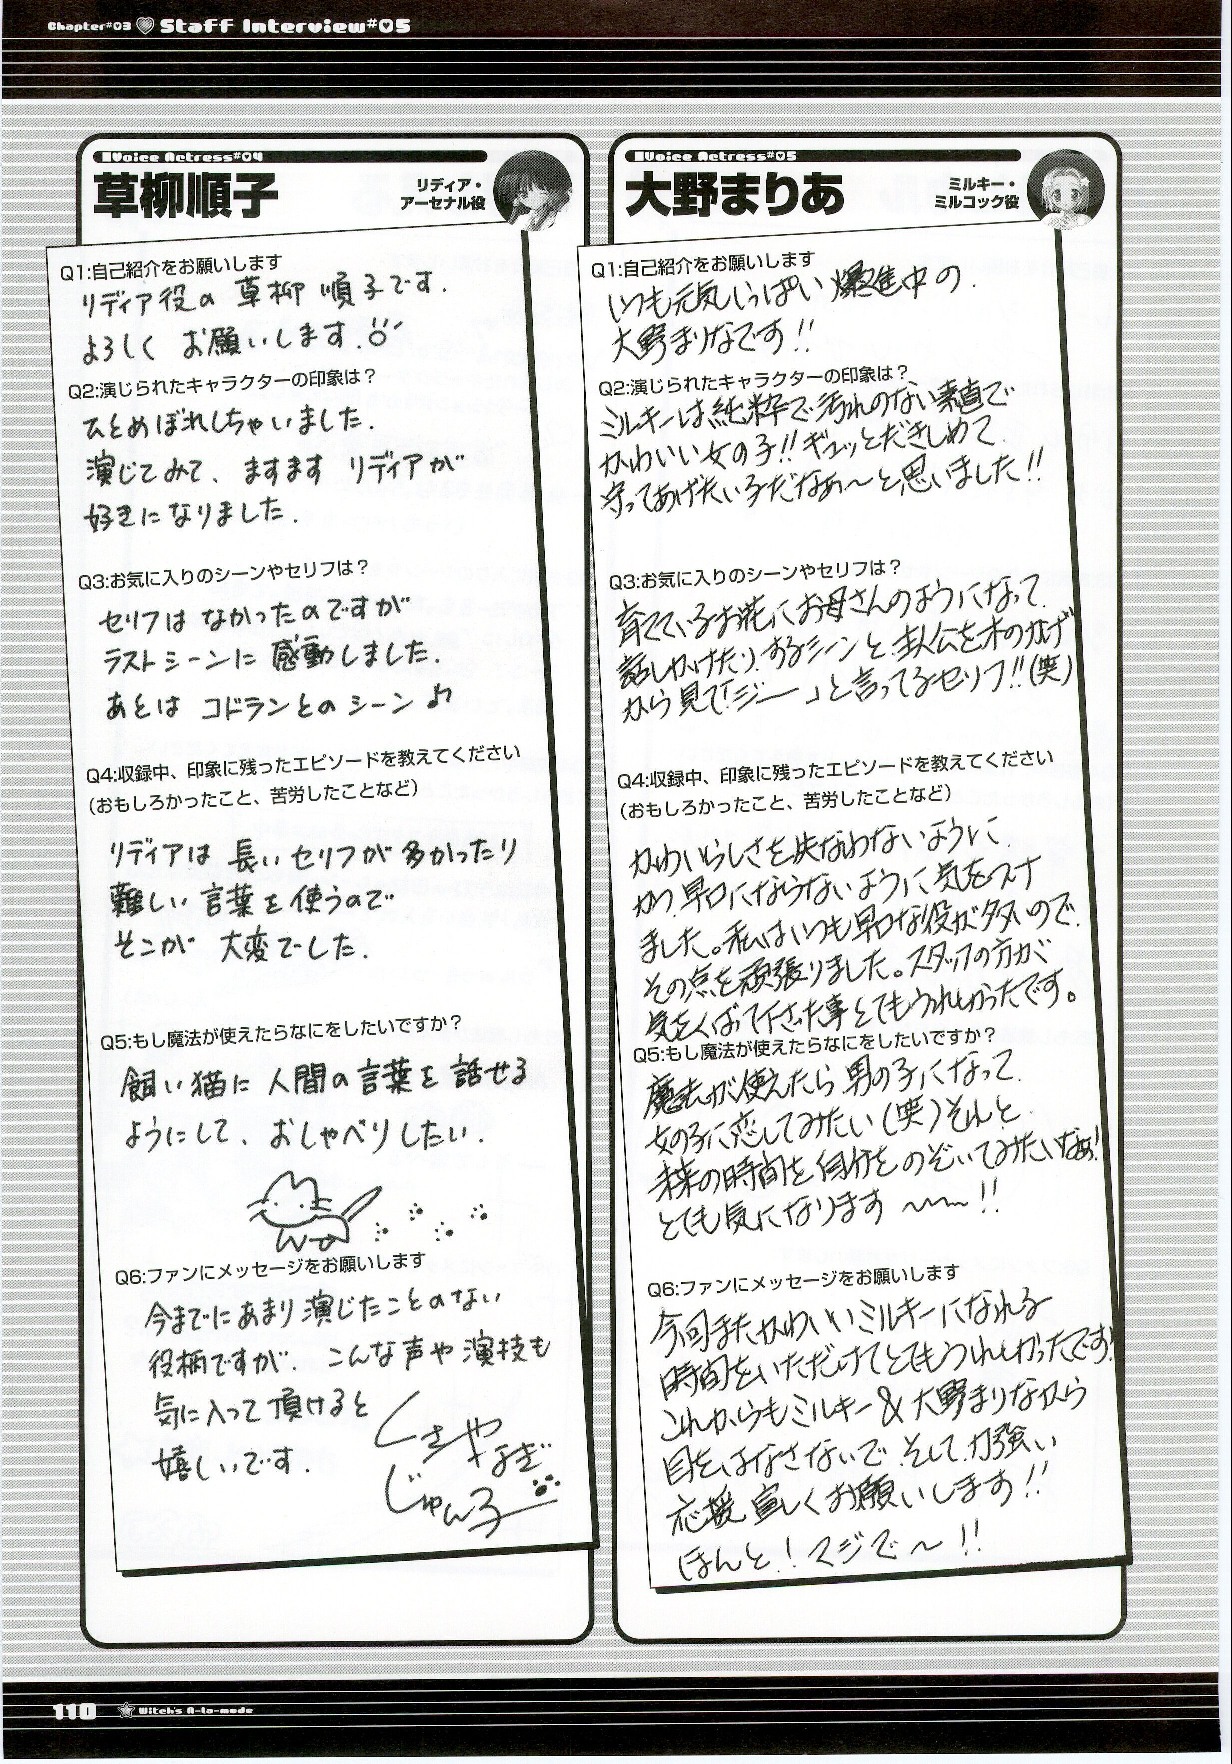 Chapter#03 Staff Interview#05
Voice Actress#04
草柳順子
リディア・
アーセナル役
Q1:自己紹介をお願いします
リディア役の 草柳 順子です.
よろしく お願いします.
Q2:演じられたキャラクターの印象は?
ひとめぼれしちゃいました.
演じてみて、ますます リディアが
好きになりました.
Q3:お気に入りのシーンやセリフは?
セリフは なかったのですが
ラストシーンに 感動しました.
あとは コドランとのシーン♪
Q4:収録中、印象に残ったエピソードを教えてください
(おもしろかったこと、苦労したことなど)
リディアは 長いセリフが 多かったり
難しい 言葉を 使うので
そこが 大変でした.
Q5:もし魔法が使えたらなにをしたいですか?
飼い猫に 人間の言葉を 話せる
ようにして、おしゃべりしたい.
Q6:ファンにメッセージをお願いします
今までにあまり演じたことのない
役柄ですが. こんな声や演技も
気に入って頂けると
嬉しいです.
くさやなぎ
じゅん子
Voice Actress#05
大野まりあ
ミルキー・
ミルコック役
Q1:自己紹介をお願いします
いつも元気いっぱい 爆進中の.
大野まりなです!!
Q2:演じられたキャラクターの印象は?
ミルキーは純粋で汚れのない素直で
かわいい女の子!!ギュッとだきしめて
守ってあげたい子だなぁ〜と思いました!!
Q3:お気に入りのシーンやセリフは?
育てているお花にお母さんのようになって
話しかけたりするシーンと、主人公を木のかげ
から見て「ジー—」と言ってるセリフ!!(笑)
Q4:収録中、印象に残ったエピソードを教えてください
(おもしろかったこと、苦労したことなど)
かわいらしさを失なわないように
かつ、早口にならないように気をつけ
ました。私はいつも早口な役が多いので.
その点を頑張りました。スタッフの方が
気をくばって下さった事とてもうれしかったです。
Q5:もし魔法が使えたらなにをしたいですか?
魔法が使えたら男の子になって
女の子に恋してみたい(笑)それと
未来の時間を自分をのぞいてみたいなぁ!
とても気になります 〜〜〜!!
Q6:ファンにメッセージをお願いします
今回またかわいいミルキーになれる
時間をいただけてとてもうれしかったです!
これからもミルキー&大野まりなから
目をはなさないで そして力強い
応援 宜しくお願いします!!
ほんと!マジで〜!!
110 Witch's A-la-mode